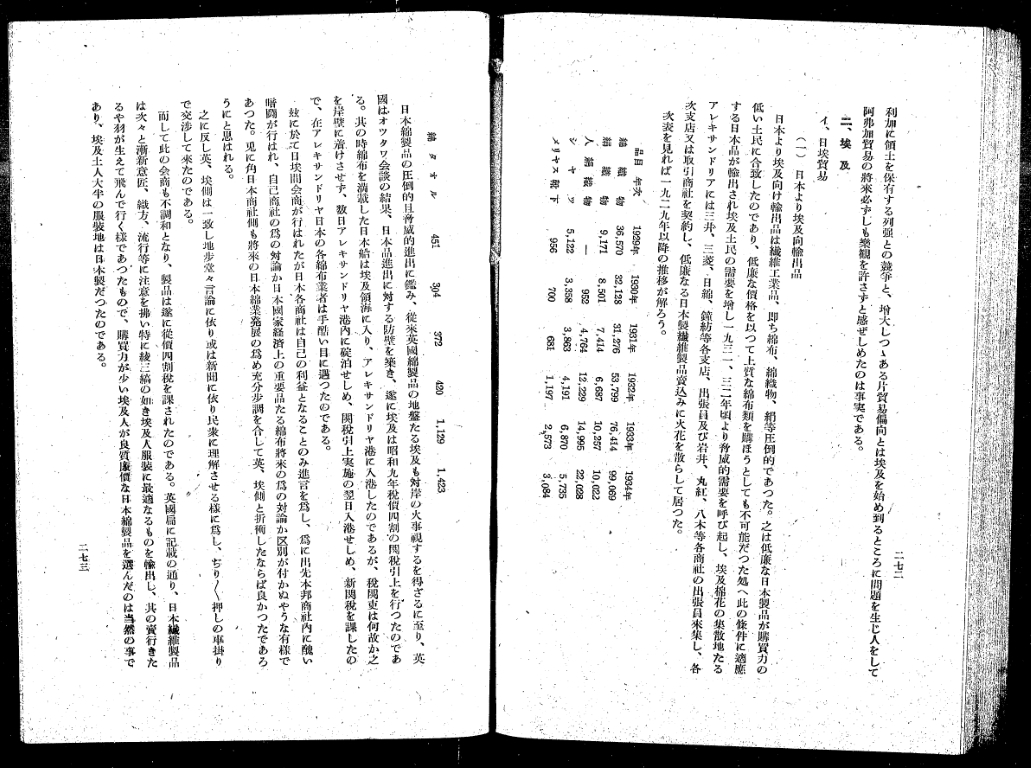 二七二
利加に領土を保有する列强との競爭と、增大しつゝある片貿易偏向とは埃及を始め到るところに問題を生じ人をして
阿弗加貿易の將來必ずしも樂觀を許さずと感ぜしめたのは事實である。
二、埃及
イ、日埃貿易
(一) 日本より埃及向輸出品
日本より埃及向け輸出品は纎維工業品、即ち綿布、綿織物、絹等圧倒的であつた。之は低廉な日本製品が購買力の
低い土民に合致したのであり、低廉な價格を以つて上質な綿布類を購ほうとしても不可能だつた処へ此の條件に適應
する日本品が輸出され埃及土民の需要を增し一九三一、三二年頃より脅威的需要を呼び起し、埃及棉花の集散地たる
アレキサンドリアには三井、三菱、日綿、鐘紡等各支店、出張員及び岩井、丸紅、八木等各商社の出張員来集し、各
次支店又は取引商社を契約し、低廉なる日本製纎維製品賣込みに火花を散らして居つた。
次表を見れば一九二九年以降の推移が解ろう。
品目 年次 1929年 1930年 1931年 1932年 1933年 1934年
綿織物 36,570 32,128 31,276 53,799 76,414 99,069
絹織物 9,171 8,501 7,414 6,687 10,257 10,022
人絹織物 — 952 4,764 12,229 14,995 22,028
シャャツ 5,122 3,358 3,863 4,191 6,870 5,735
メリヤス靴下 956 700 681 1,197 2,573 3,084
綿タオル 451 394 372 420 1,129 1,423
日本綿製品の圧倒的且脅威的進出に鑑み、從來英國綿製品の地盤たる埃及も対岸の火事視するを得ざるに至り、英
國はオツタワ会談の結果、日本品進出に対する防壁を築き、遂に埃及は昭和九年從價四割の関税引上を行つたのであ
る。其の時綿布を満載した日本船は埃及領海に入り、アレキサンドリヤ港に入港したのであるが、税関吏は何故か之
を岸壁に着けさせず、数日アレキサンドリヤ港内に碇泊せしめ、関税引上実施の翌日入港せしめ、新関税を課したの
で、在アレキサンドリヤ日本の各綿布業者は手酷い目に遇つたのである。
玆に於て日埃間会商が行はれたが日本各商社は自己の利益となることのみ進言を爲し、爲に出先本邦商社内に醜い
暗闘が行はれ、自己商社の爲の対論か日本國家経済上の重要品たる綿布將来の爲の対論か区別が付かぬやうな有様で
あつた。兎に角日本商社側も將來の日本綿業発展の爲め充分歩調を合して英、埃側と折衝したならば良かつたであろ
うにと思はれる。
之に反し英、埃側は一致し地歩堂々言論に依り或は新聞に依り民衆に理解させる様に爲し、ぢり〱押しの車掛り
で交渉して来たのである。
而して此の会商も不調和となり、製品は遂に從價四割税を課されたのである。英國局に記載の通り、日本纎維製品
は次々と漸新意匠、織方、流行等に注意を拂い特に綾三縞の如き埃及人服裝に最適なるものを輸出し、其の賣行きた
るや羽が生えて飛んで行く樣であつたもので、購買力が少い埃及人が良質廉價な日本綿製品を選んだのは当然の事で
あり、埃及土人大半の服裝地は日本製だつたのである。
二七三